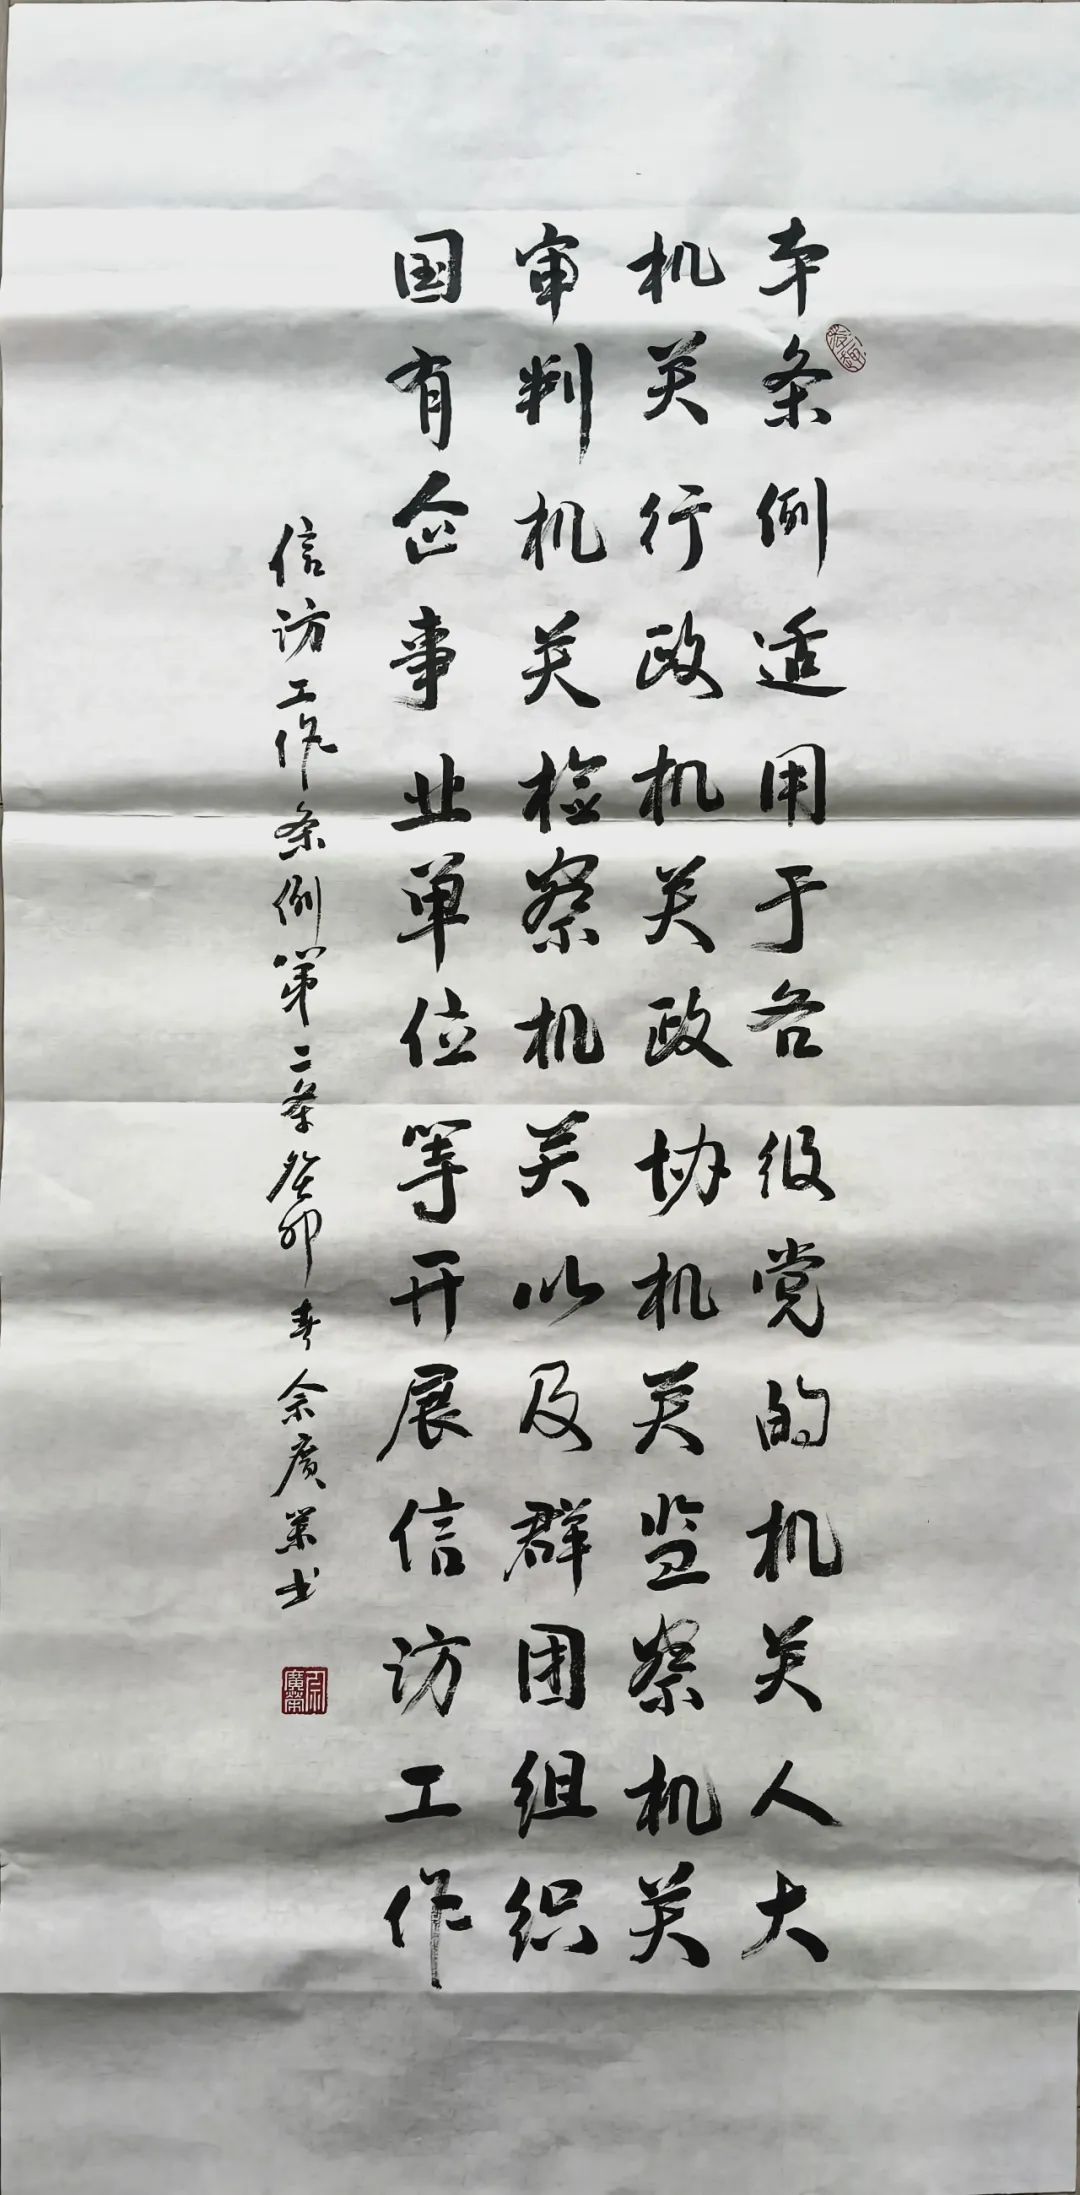 本条例适用于各级党的机关人大
机关行政机关政协机关监察机关
审判机关检察机关以及群团组织
国有企事业单位等开展信访工作
信访工作条例第二条癸卯春余广策书